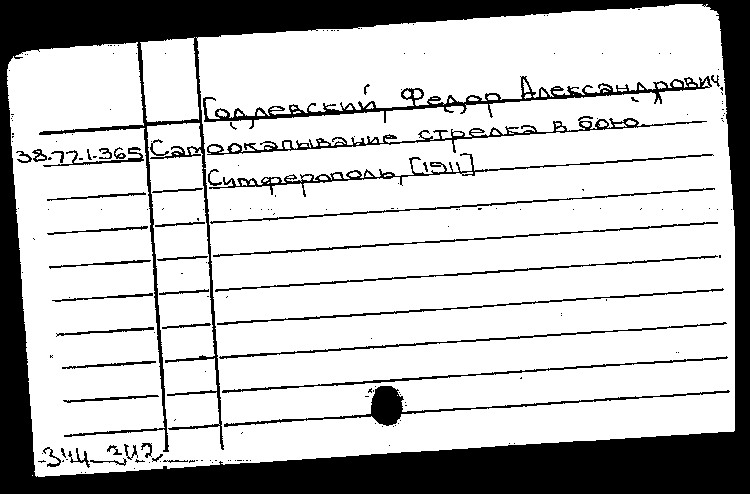 Годлевский, Федор Александрович
38.77.1.365 Самоокапывание стрелка в бою.
Симферополь, [1911]
344 342